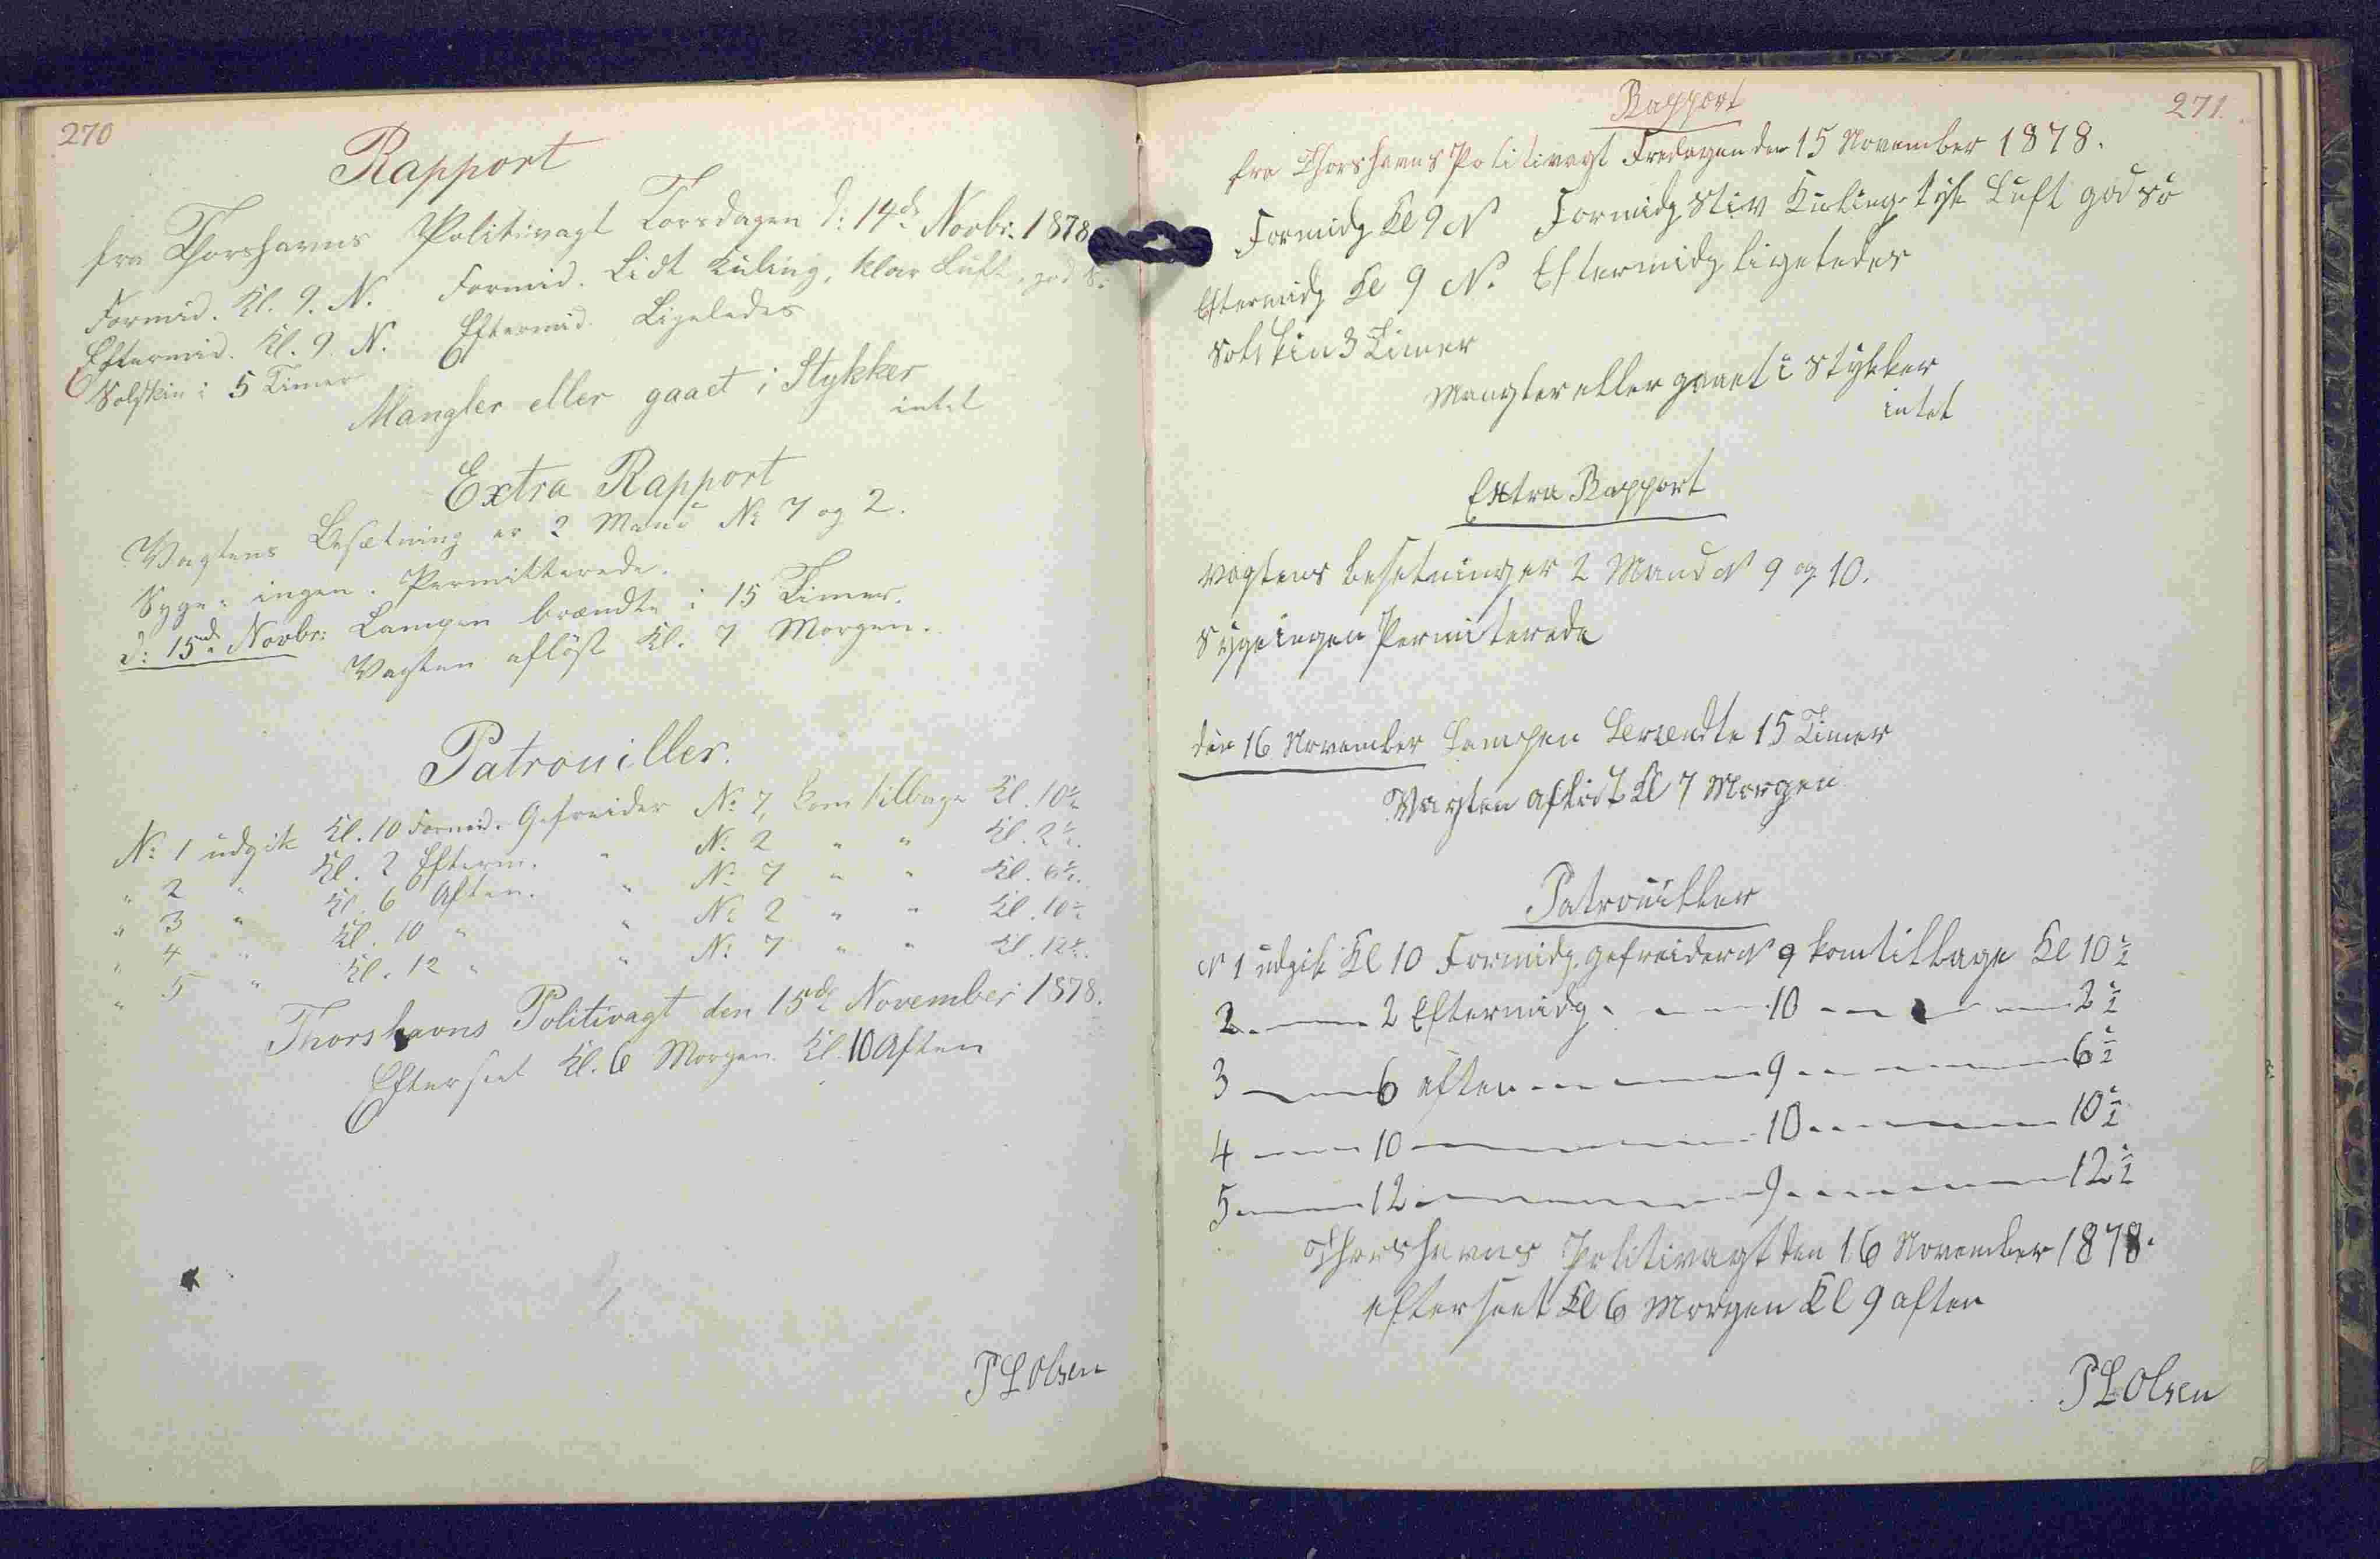 270
Rapport
fra Thorshavns Politivagt Torsdagen d: 14de Novbr. 1878
Formid. Kl. 9. N. Formid. Lidt Kuling, klar Luft, god S.
Eftermid. Kl. 9. N. Eftermid. Ligeledes
Solskin i 5 Timer
Mangler eller gaaet i Stykker
intet
Extra Rapport
Vagtens Besætning er 2 Mand No 7 og 2.
Syge: ingen. Permitterede.
d: 15de Novbr: Lampen brændte i 15 Timer.
Vagten afløst Kl. 7 Morgen.
Patrouiller.
No 1 udgik Kl. 10 Formid. Gefreider No 7, kom tilbage Kl. 10½
" 2 " Kl. 2 Efterm. " No 2 " " Kl. 2½.
" 3 " Kl. 6 Aften. " No 7 " " Kl. 6½.
" 4 " Kl. 10 " " No 2 " " Kl. 10½
" 5 " Kl. 12 " " No 7 " " Kl. 12½.
Thorshavns Politivagt den 15de November 1878.
Efterseet Kl. 6 Morgen. Kl. 10 Aften
P L Olsen
271.
Rapport
fra Thorshavns Politivagt Fredagen den 15 November 1878.
Formidg Kl 9 N Formidg Stiv Kuling tyk Luft god Sö
Eftermidg Kl 9 N. Eftermidg ligeledes
Solskin 3 Timer
Mangler eller gaaet i Stykker
intet
Extra Rapport
Vagtens besetning er 2 Mand N 9 og 10.
Syge ingen Permiterede
den 16 November Lampen Brændte 15 Timer
Vagten aflöst Kl 7 Morgen
Patrouiller
N 1 udgik Kl 10 Formidg. gefreider N 9 kom tilbage Kl 10½
2 — 2 Eftermidg. — 10 — 2½
3 — 6 aften — 9 — 6½
4 — 10 — 10 — 10½
5 — 12 — 9 — 12½
Thorshavns Politivagt den 16 November 1878.
efterseet Kl 6 Morgen Kl 9 aften
P L Olsen